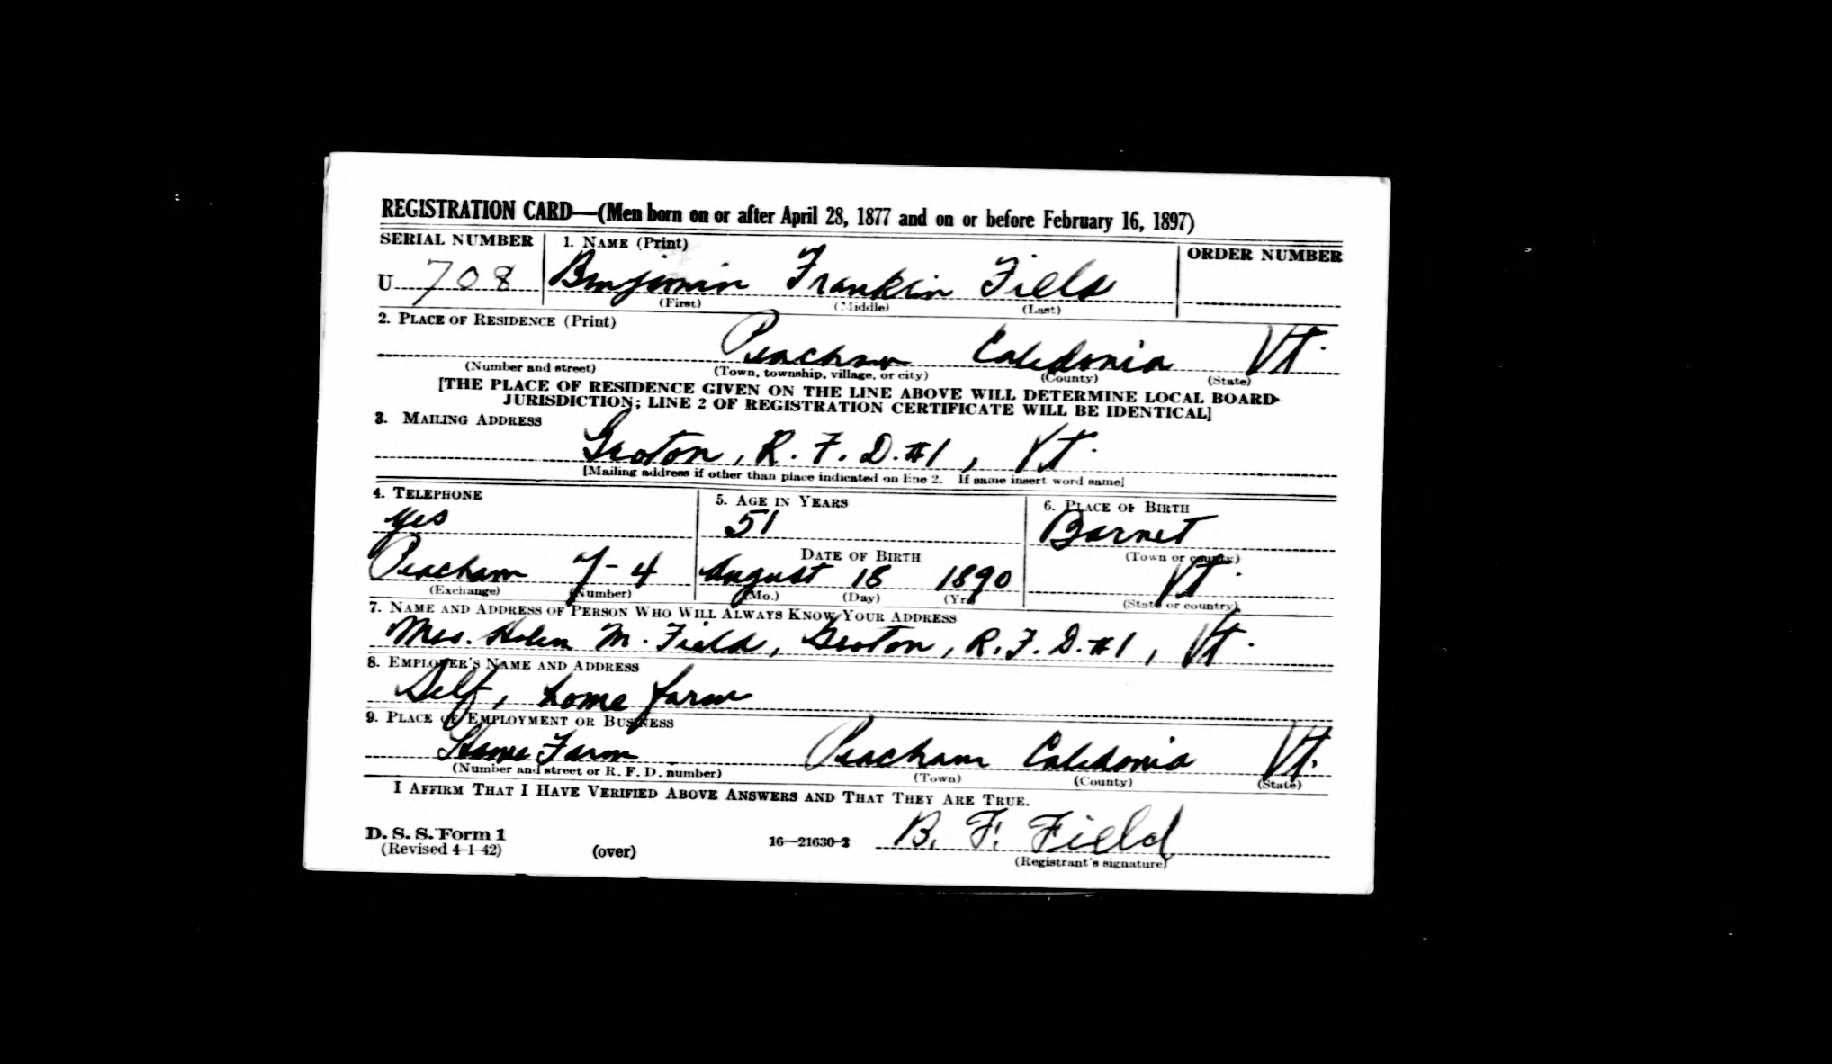 REGISTRATION CARD—(Men born on or after April 28, 1877 and on or before February 16, 1897)
SERIAL NUMBER 1. NAME (Print) ORDER NUMBER
U 708 Benjamin Franklin Field
(First) (Middle) (Last)
2. PLACE OF RESIDENCE (Print)
Peacham Caledonia Vt.
(Number and street) (Town, township, village, or city) (County) (State)
[THE PLACE OF RESIDENCE GIVEN ON THE LINE ABOVE WILL DETERMINE LOCAL BOARD
JURISDICTION; LINE 2 OF REGISTRATION CERTIFICATE WILL BE IDENTICAL]
3. MAILING ADDRESS
Groton, R. F. D. #1, Vt.
[Mailing address if other than place indicated on line 2. If same insert word same]
4. TELEPHONE 5. AGE IN YEARS 6. PLACE OF BIRTH
yes 51 Barnet
DATE OF BIRTH (Town or county)
Peacham 7-4 August 18 1890 Vt.
(Exchange) (Number) (Mo.) (Day) (Yr.) (State or country)
7. NAME AND ADDRESS OF PERSON WHO WILL ALWAYS KNOW YOUR ADDRESS
Mrs. Helen M. Field, Groton, R. F. D. #1, Vt.
8. EMPLOYER'S NAME AND ADDRESS
Self, home farm
9. PLACE OF EMPLOYMENT OR BUSINESS
Home Farm Peacham Caledonia Vt.
(Number and street or R. F. D. number) (Town) (County) (State)
I AFFIRM THAT I HAVE VERIFIED ABOVE ANSWERS AND THAT THEY ARE TRUE.
D. S. S. Form 1
(Revised 4-1-42) (over) 16—21630-2 B. F. Field
(Registrant's signature)